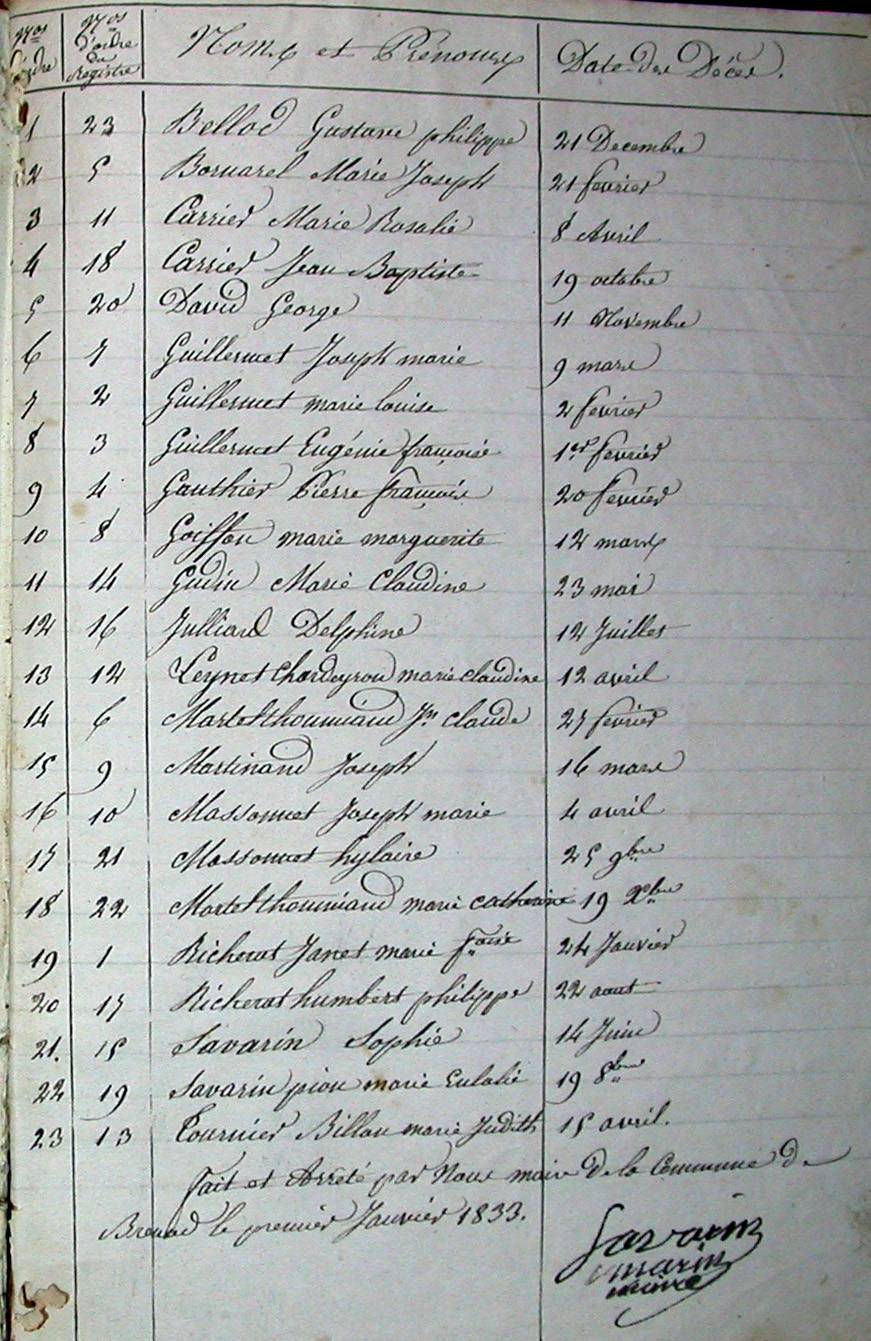 Nos d'ordre | Nos d'ordre du Registre | Noms et Prénoms | Date des Décès.
1 23 Bellod Gustave philippe 21 Decembre
2 5 Bornarel Marie Joseph 21 fevrier
3 11 Carrier Marie Rosalie 8 Avril
4 18 Carrier Jean Baptiste 19 octobre
5 20 David George 11 Novembre
6 7 Guillermet Joseph marie 9 mars
7 2 Guillermet marie louise 2 fevrier
8 3 Guillermet Eugénie françoise 1er fevrier
9 4 Gauthier Pierre françois 20 fevrier
10 8 Goiffon marie marguerite 12 mars
11 14 Gudin Marie Claudine 23 mai
12 16 Julliard Delphine 12 Juillet
13 12 Leynet Chardeyron marie claudine 12 avril
14 6 Martel thoumiand Jn claude 27 fevrier
15 9 Martinand Joseph 16 mars
16 10 Massonnet Joseph marie 4 avril
17 21 Massonnet hylaire 25 9bre
18 22 Martel thoumiand marie catherine 19 Xbre
19 1 Richerot Janet marie foise 24 Janvier
20 17 Richerot humbert philippe 22 aout
21. 15 Savarin Sophie 14 Juin
22 19 Savarin pion marie Eulalie 19 8bre
23 13 Tournier Billon marie Judith 15 avril.
fait et Arreté par Nous maire de la Commune de
Brenod le premier Janvier 1833.
Savarin
marin
maire